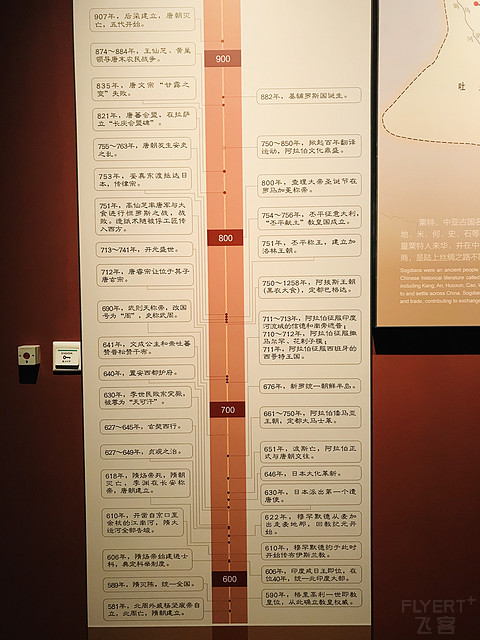 907年，后梁建立，唐朝灭
亡，五代开始。
874～884年，王仙芝、黄巢
领导唐末农民战争。
835年，唐文宗“甘露之
变”失败。
821年，唐蕃会盟，在拉萨立
“长庆会盟碑”。
755～763年，唐朝发生安史
之乱。
753年，鉴真东渡抵达日
本，传律宗。
751年，高仙芝率唐军与大
食进行怛罗斯之战，战
败。造纸术随被俘工匠传
入西方。
713～741年，开元盛世。
712年，唐睿宗让位于其子
唐玄宗。
690年，武则天称帝，改国
号为“周”，史称武周。
641年，文成公主和亲吐蕃
赞普松赞干布。
640年，置安西都护府。
630年，李世民败东突厥，
被尊为“天可汗”。
627～645年，玄奘西行。
627～649年，贞观之治。
618年，隋炀帝死，隋朝
灭亡，李渊在长安称
帝，唐朝建立。
610年，开凿自京口至
余杭的江南河，隋大
运河全部告竣。
606年，隋炀帝始建进士
科，典定科举制度。
589年，隋灭陈，统一全国。
581年，北周外戚杨坚废帝自
立，北周亡，隋朝建立。
900
800
700
600
882年，基辅罗斯国诞生。
750～850年，掀起百年翻译
运动，阿拉伯文化鼎盛。
800年，查理大帝圣诞节在
罗马加冕称帝。
754～756年，丕平征意大利，
“丕平献土”教皇国成立。
751年，丕平称王，建立加
洛林王朝。
750～1258年，阿拔斯王朝
(黑衣大食)，定都巴格达。
711～713年，阿拉伯征服印度
河流域的信德和南旁遮普；
710～712年，阿拉伯征服撒
马尔罕、花剌子模；
711年，阿拉伯征服西班牙的
西哥特王国。
676年，新罗统一朝鲜半岛。
661～750年，阿拉伯倭马亚
王朝，定都大马士革。
651年，波斯亡，阿拉伯正
式与唐朝交往。
646年，日本大化革新。
630年，日本派出第一个遣
唐使。
622年，穆罕默德从麦加
出走麦地那，回教纪元开
始。
610年，穆罕默德约于此时
开始传布伊斯兰教。
606年，印度戒日王即位，在
位40年，统一北印度大部。
590年，格里高利一世即教
皇位，从此确立教皇权威。
吐
粟特，中亚古国名
地、米、何、史、石等
量粟特人来华，并在中
商，是陆上丝绸之路不
Sogdians were an ancient people
Chinese historical literature called
including Kang, An, Huoxun, Cao,
to and settle across China. Sogdia
and trade, contributing to exchange
FLYERT+
飞客